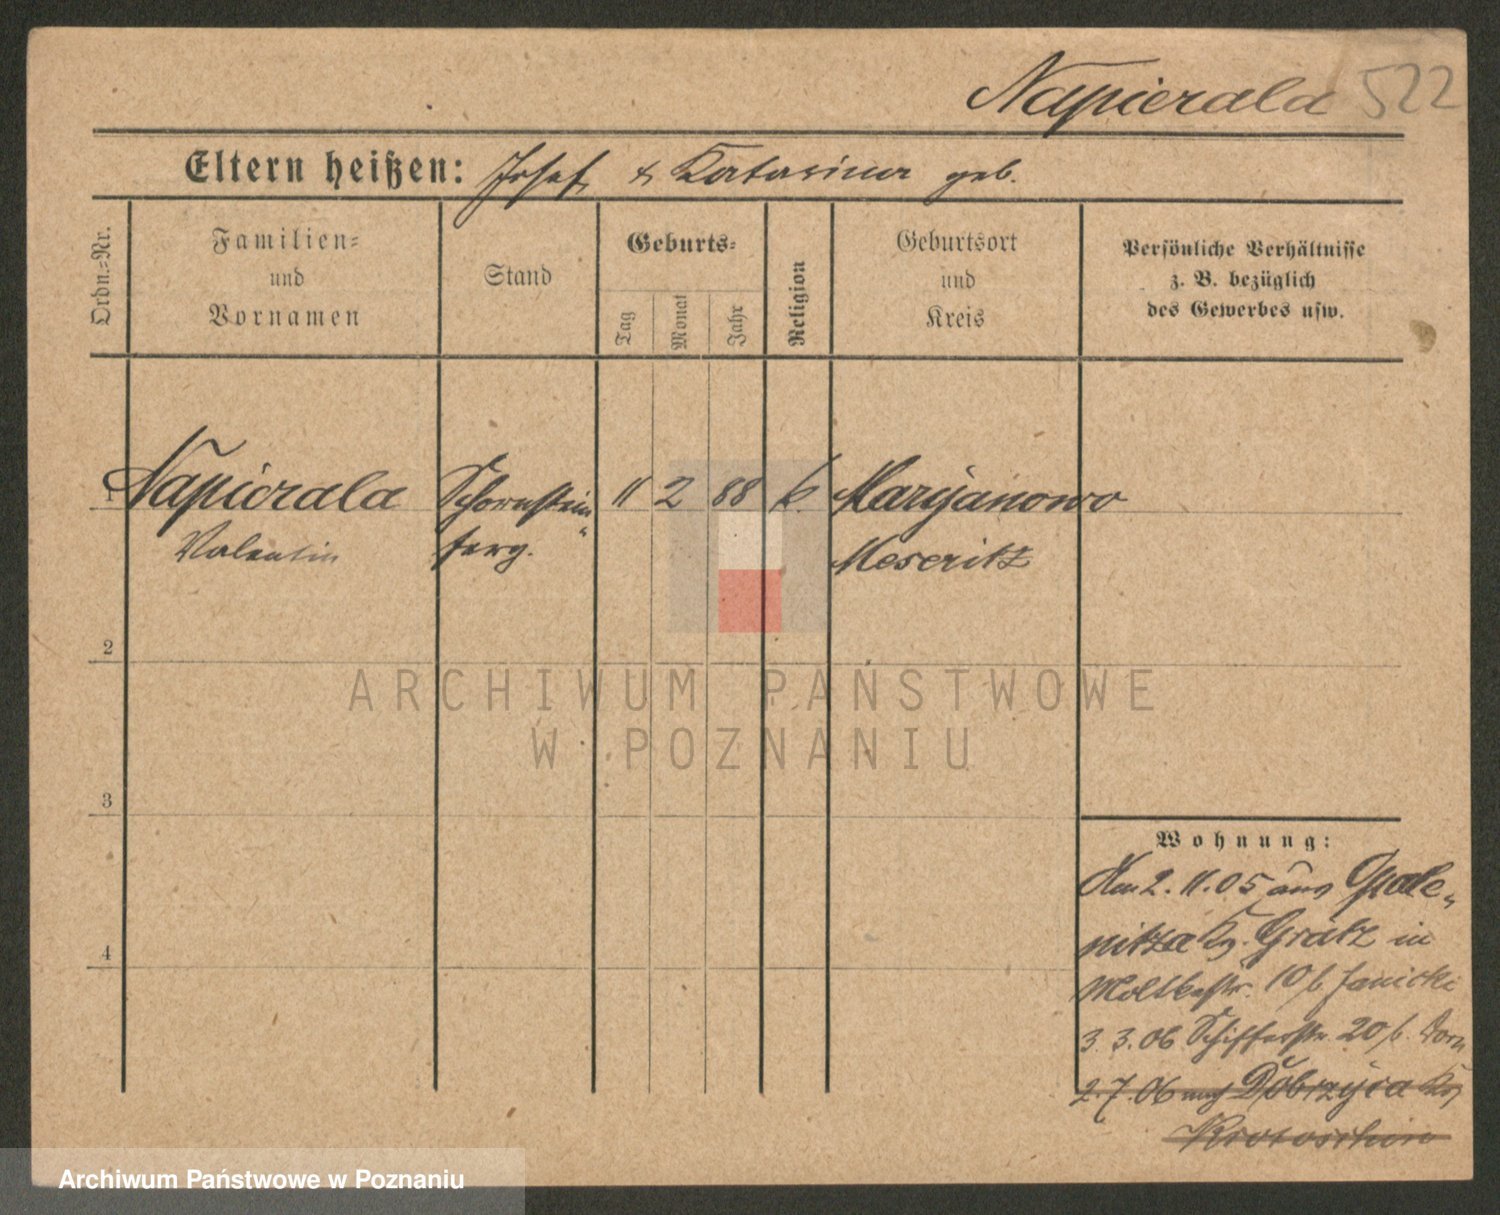 Napierala 522
Eltern heißen: Josef & Katarina geb.
Ordn.-Nr.
Familien-
und
Vornamen
Stand
Geburts-
Tag
Monat
Jahr
Religion
Geburtsort
und
Kreis
Persönliche Verhältnisse
z. B. bezüglich
des Gewerbes usw.
1 Napierala Schornstein- 11 2 88 k. Marijanowo
Valentin ferg. Meseritz
2
ARCHIWUM PAŃSTWOWE
W POZNANIU
3
Wohnung:
2.11.05 aus Opale-
nitza Kr. Grätz in
4
Moltkestr. 10 b. Janicki
3.3.06 Schifferstr. 20 b. Dorn
2.7.06 nach Dobrzyca Kr
Krotoschin
Archiwum Państwowe w Poznaniu